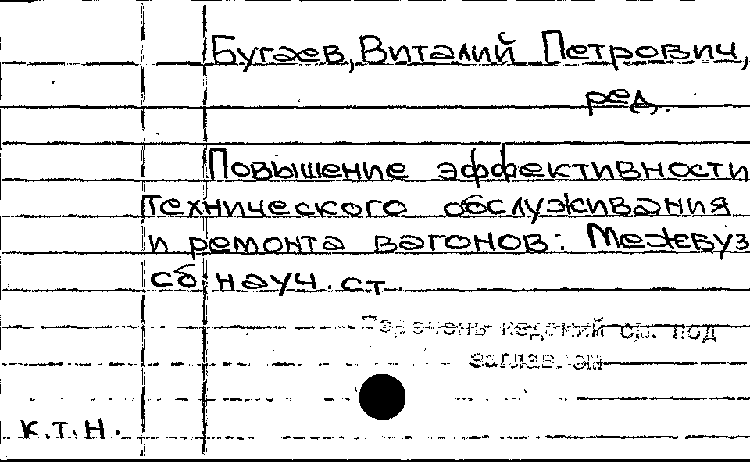 Бугаев, Виталий Петрович,
ред.
Повышение эффективности
технического обслуживания
и ремонта вагонов: Межвуз
сб науч. ст.
ср. под
к.т.н.